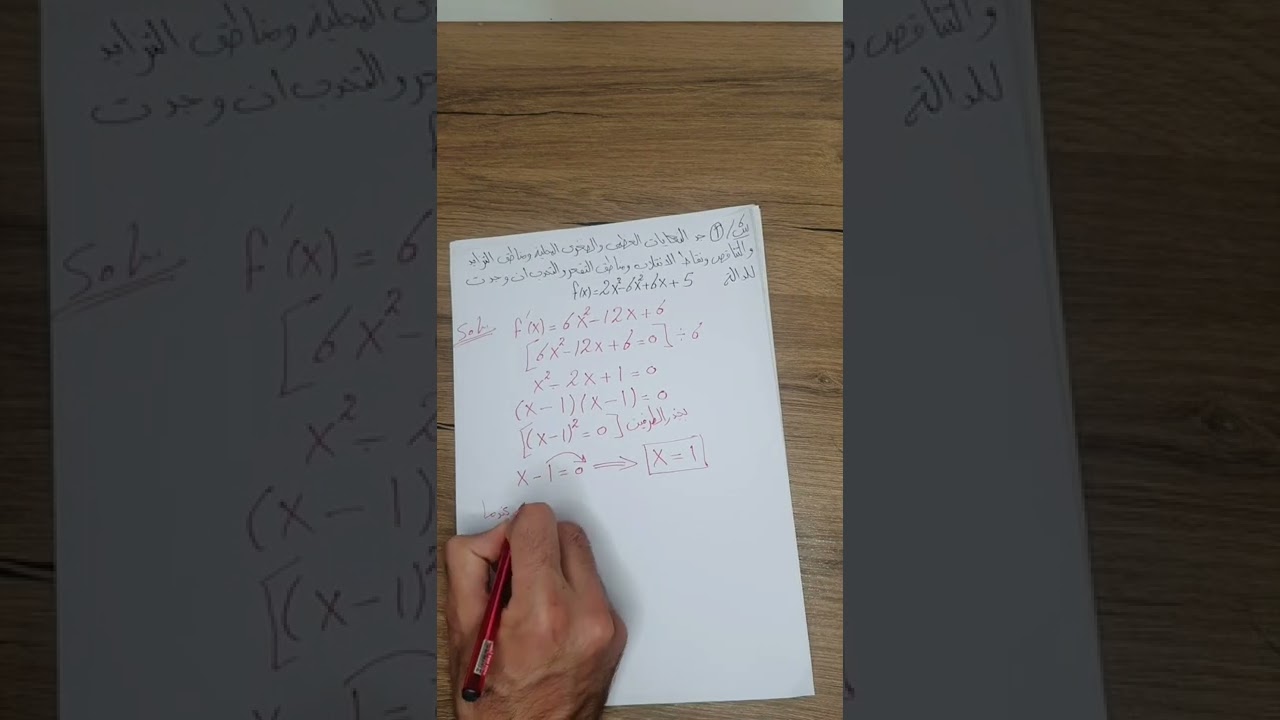 س/ ① جد النهايات العظمى والصغرى المحلية ومناطق التزايد
والتناقص ونقاط الانقلاب ومناطق التقعر والتحدب ان وجدت
للدالة f(x)=2x²-6x²+6x+5
Sol. f'(x)=6x²-12x+6
[6x²-12x+6=0]÷6
x²-2x+1=0
(x-1)(x-1)=0
[(x-1)²=0] بجذر الطرفين
x-1=0 ⟹ x=1
عندما